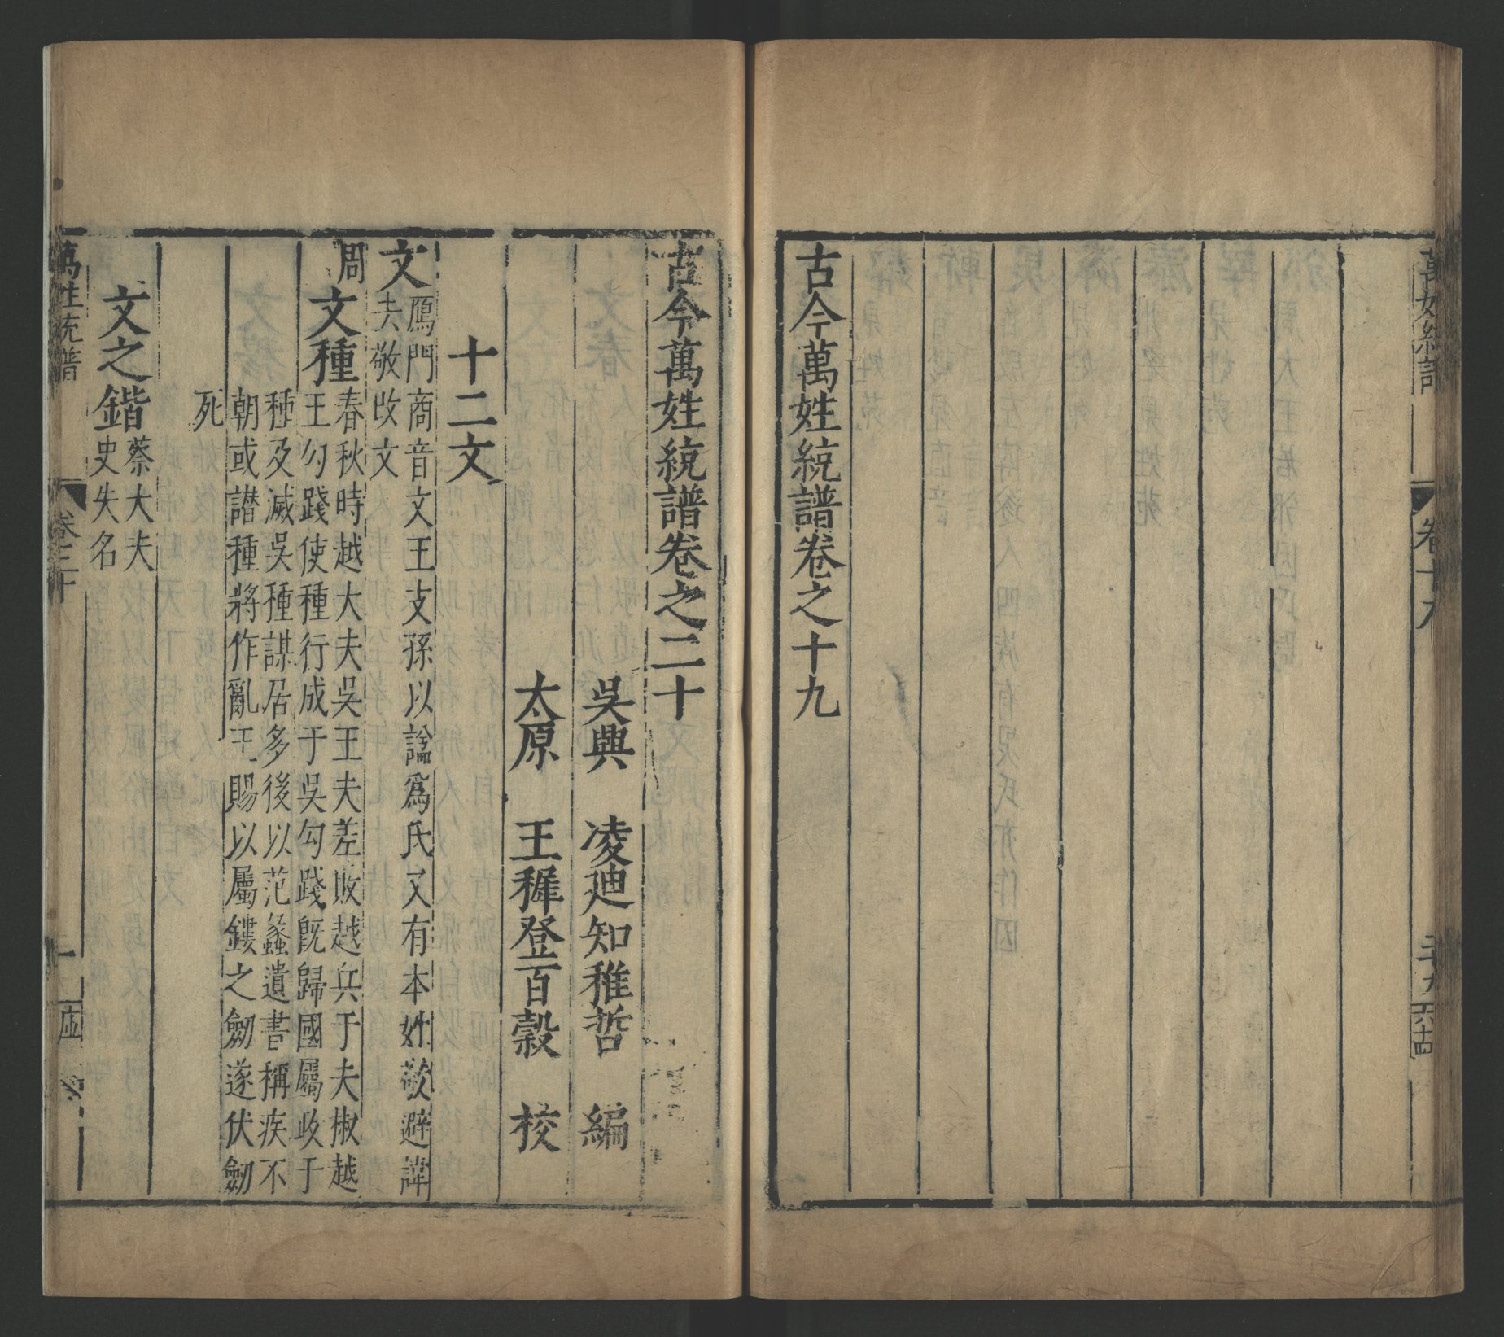 古今萬姓統譜卷之十九
古今萬姓統譜卷之二十
吳興 凌迪知稚哲 編
太原 王穉登百穀 校
十二文
文
鴈門商音文王支孫以諡爲氏又有本姓敬避諱
去敬改文
周
文種
春秋時越大夫吳王夫差敗越兵于夫椒越
王勾踐使種行成于吳勾踐旣歸國屬政于
種及滅吳種謀居多後以范蠡遺書稱疾不
朝或譖種將作亂王賜以屬鏤之劒遂伏劒
死
文之鍇
蔡大夫
史失名
萬姓統譜
卷二十
一